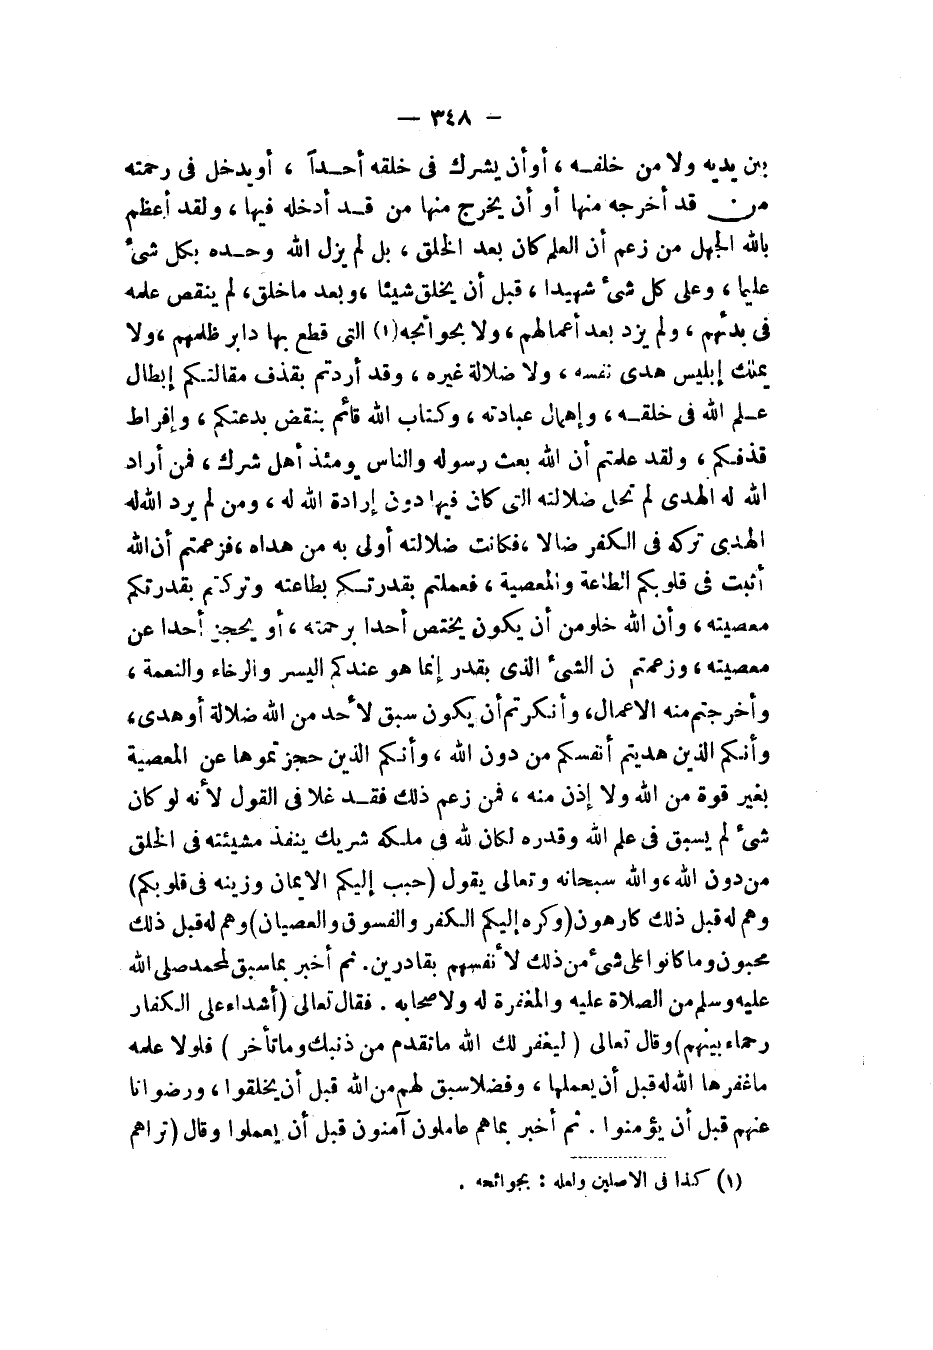 — ٣٤٨ —
بين يديه ولا من خلفه ، أو أن يشرك فى خلقه أحداً ، أو يدخل فى رحمته
من قد أخرجه منها أو أن يخرج منها من قد أدخله فيها ، ولقد أعظم
بالله الجهل من زعم أن العلم كان بعد الخلق ، بل لم يزل الله وحده بكل شىء
عليما ، وعلى كل شىء شهيدا ، قبل أن يخلق شيئا ، وبعد ما خلق ، لم ينقص علمه
فى بدئهم ، ولم يزد بعد أعمالهم ، ولا بحوائجه (١) التى قطع بها دابر ظلمهم ، ولا
يملك إبليس هدى نفسه ، ولا ضلالة غيره ، وقد أردتم بقذف مقالتكم إبطال
علم الله فى خلقه ، وإهمال عبادته ، وكتاب الله قائم بنقض بدعتكم ، وإفراط
قذفكم ، ولقد علمتم أن الله بعث رسوله والناس يومئذ أهل شرك ، فمن أراد
الله له الهدى لم تحل ضلالته التى كان فيها دون إرادة الله له ، ومن لم يرد الله له
الهدى تركه فى الكفر ضالا ، فكانت ضلالته أولى به من هداه ، فزعمتم أن الله
أثبت فى قلوبكم الطاعة والمعصية ، فعملتم بقدرتكم بطاعته وتركتم بقدرتكم
معصيته ، وأن الله خلو من أن يكون يختص أحدا برحمته ، أو يحجز أحدا عن
معصيته ، وزعمتم ن الشىء الذى بقدر إنما هو عندكم اليسر والرخاء والنعمة ،
وأخرجتم منه الاعمال ، وأنكرتم أن يكون سبق لأحد من الله ضلالة أو هدى ،
وأنكم الذين هديتم أنفسكم من دون الله ، وأنكم الذين حجزتموها عن المعصية
بغير قوة من الله ولا إذن منه ، فمن زعم ذلك فقد غلا فى القول لأنه لو كان
شىء لم يسبق فى علم الله وقدره لكان لله فى ملكه شريك ينفذ مشيئته فى الخلق
من دون الله ، والله سبحانه وتعالى يقول (حبب إليكم الايمان وزينه فى قلوبكم)
وهم له قبل ذلك كارهون (وكره إليكم الكفر والفسوق والعصيان) وهم له قبل ذلك
محبون وما كانوا على شىء من ذلك لأنفسهم بقادرين . ثم أخبر بما سبق لمحمد صلى الله
عليه وسلم من الصلاة عليه والمغفرة له ولاصحابه . فقال تعالى (أشداء على الكفار
رحماء بينهم) وقال تعالى ( ليغفر لك الله ما تقدم من ذنبك وما تأخر ) فلولا علمه
ما غفرها الله له قبل أن يعملها ، وفضلا سبق لهم من الله قبل أن يخلقوا ، ورضوانا
عنهم قبل أن يؤمنوا . ثم أخبر بما هم عاملون آمنون قبل أن يعملوا وقال (تراهم
(١) كذا فى الاصلين ولعله : بجوائحه .